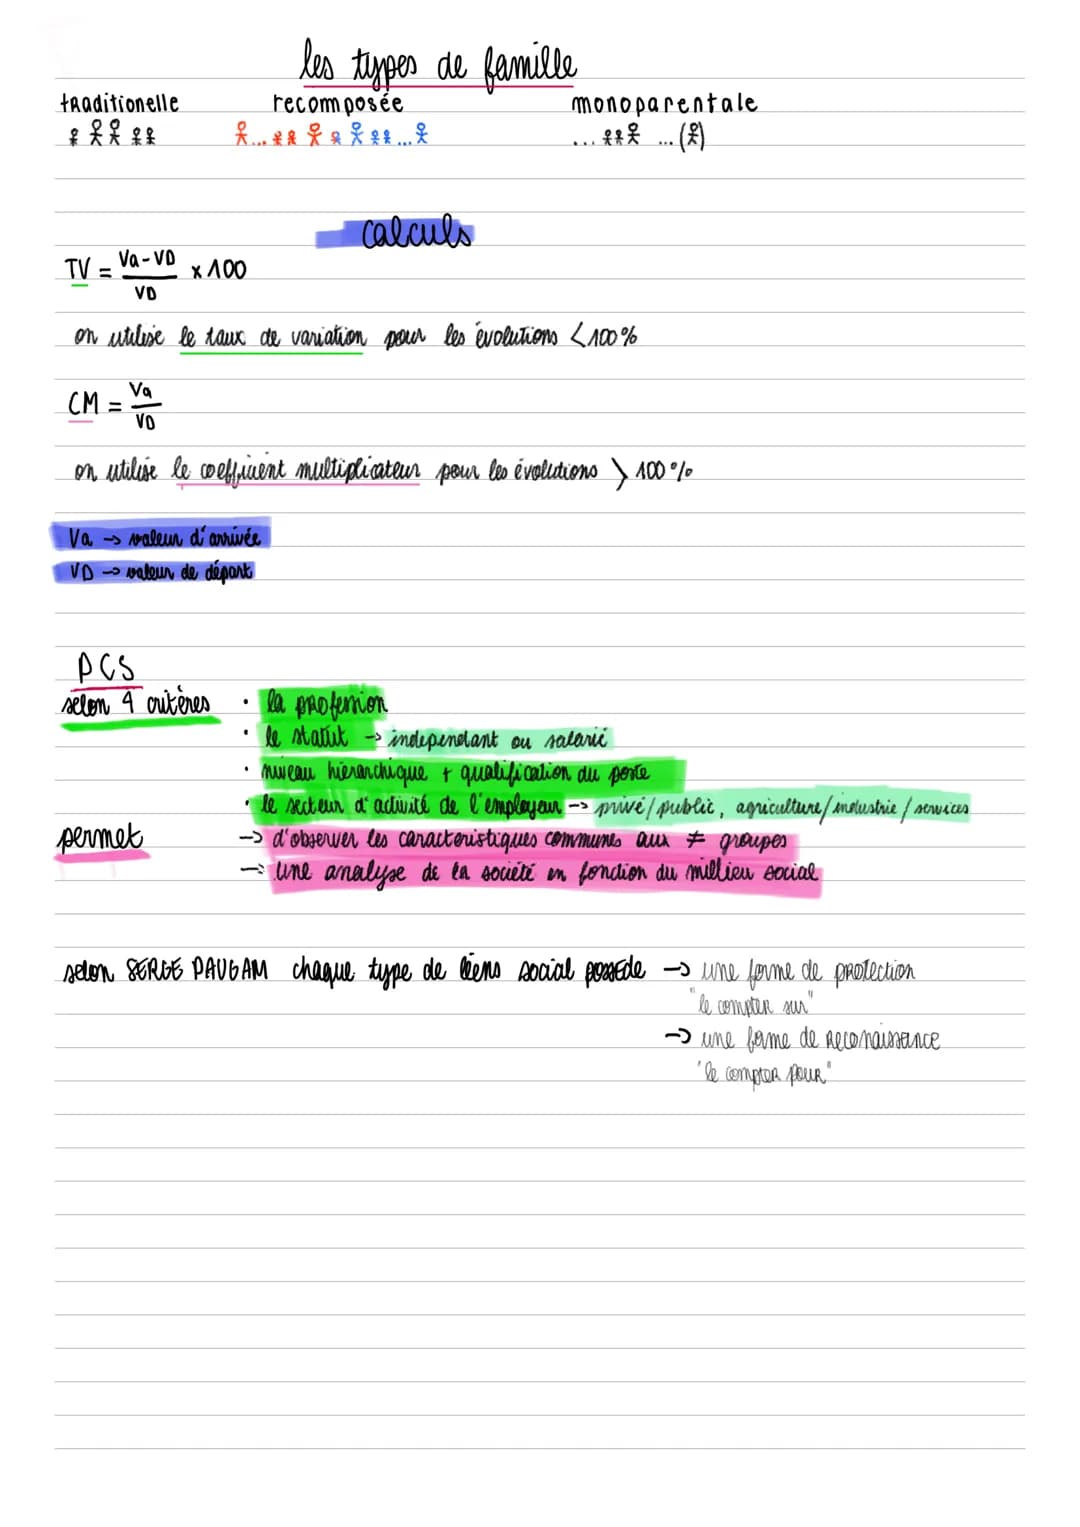 les types de famille
traditionelle recomposée monoparentale
... ... ... ... (  )
calculs
TV = Va - VD / VD x 100
on utilise le taux de variation pour les évolutions < 100 %
CM = Va / VD
on utilise le coefficient multiplicateur pour les évolutions > 100 %
Va → valeur d'arrivée
VD → valeur de départ
PCS
selon 4 critères • la profession
• le statut → independant ou salarié
• niveau hiérarchique + qualification du poste
• le secteur d'activité de l'employeur → privé/public, agriculture/industrie/services
permet → d'observer les caractéristiques communes aux ≠ groupes
→ une analyse de la société en fonction du millieu social
selon SERGE PAUGAM chaque type de liens social possède → une forme de protection
"le compter sur"
→ une forme de reconaissance
"le compter pour"